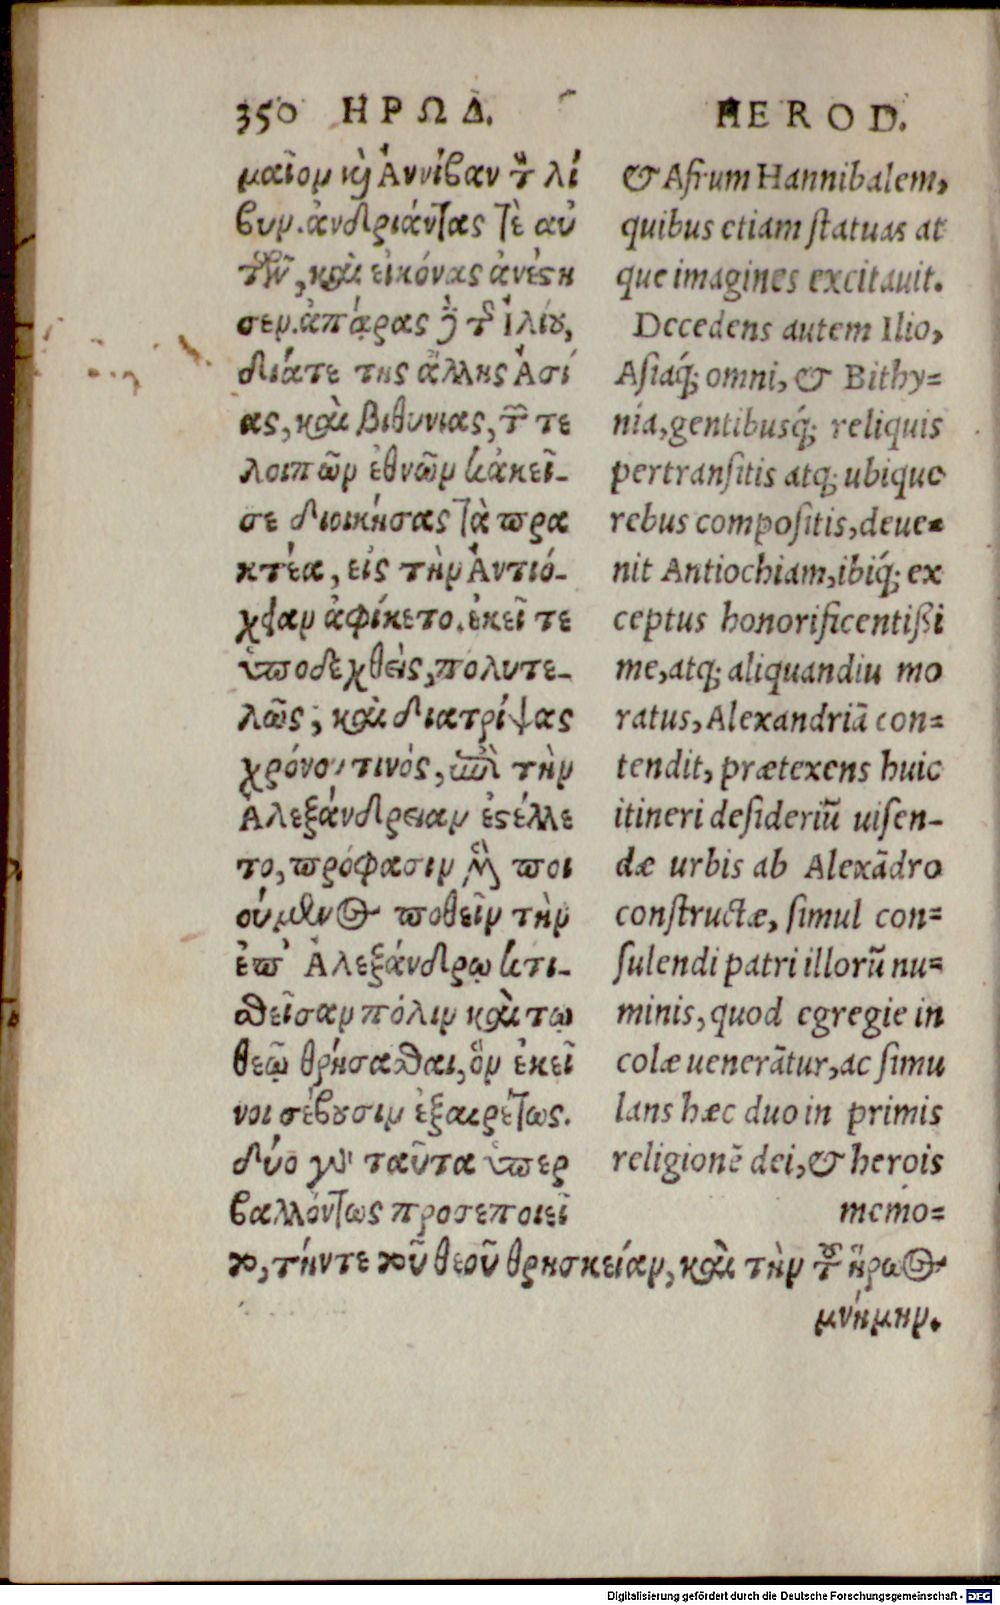 350 ΗΡΩΔ.
μαῖον κὶ Ἀννίβαν τ̀ λί
βυν. ἀνδριάντας τὲ αὐ
τῶν, καὶ εἰκόνας ἀνέςη
σεν. ἀπάρας δὲ τοῦ Ἰλίου,
διά τε της ἄλλης Ἀσί
ας, καὶ Βιθυνιας, τῶν τε
λοιπῶν ἐθνῶν κἀκεῖ-
σε διοικήσας τὰ πρα
κτέα, εἰς τὴν Ἀντιό-
χειαν ἀφίκετο. ἐκεῖ τε
ὑποδεχθεὶς, πολυτε-
λῶς, καὶ διατρίψας
χρόνου τινός, ἐπὶ τὴν
Ἀλεξάνδρειαν ἐςέλλε
το, πρόφασιν μὲν ποι
ούμενος ποθεῖν τὴν
ἐπ' Ἀλεξάνδρῳ κτι-
σθεῖσαν πόλιν καὶ τῳ
θεῷ θρήσασθαι, ὃν ἐκεῖ
νοι σέβουσιν ἐξαιρέτως.
δύο γὰρ ταῦτα ὑπερ
βαλλόντως προσεποιεῖ
το, τήντε τοῦ θεοῦ θρησκείαν, καὶ τὴν τοῦ ἥρωος
μνήμην.
HEROD.
& Afrum Hannibalem,
quibus etiam ſtatuas at
que imagines excitauit.
Decedens autem Ilio,
Aſiaq́; omni, & Bithy=
nia, gentibusq́; reliquis
pertranſitis atq; ubique
rebus compoſitis, deue=
nit Antiochiam, ibiq́; ex
ceptus honorificentiſsi
me, atq; aliquandiu mo
ratus, Alexandriā con=
tendit, prætexens huic
itineri deſideriū uiſen-
dæ urbis ab Alexādro
conſtructæ, ſimul con=
ſulendi patri illorū nu=
minis, quod egregie in
colæ uenerātur, ac ſimu
lans hæc duo in primis
religionē dei, & herois
memo=
Digitalisierung gefördert durch die Deutsche Forschungsgemeinschaft - DFG